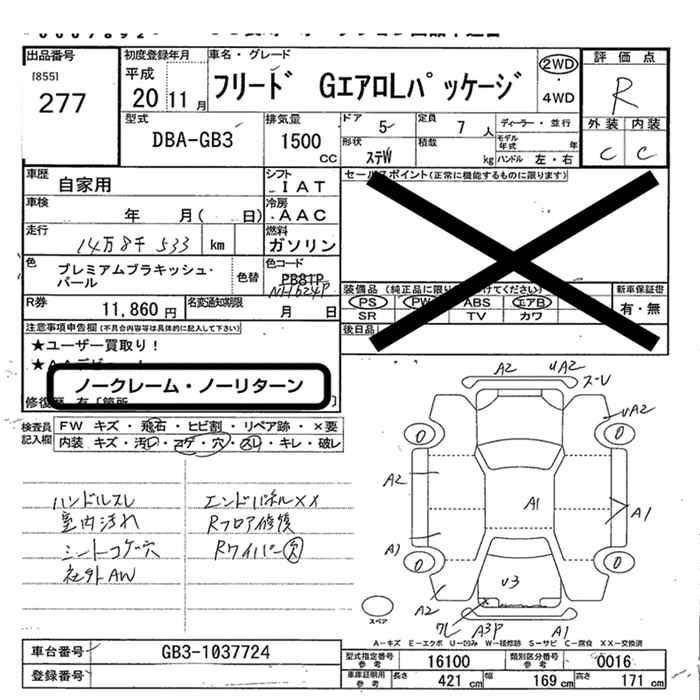 出品番号
[855]
277
初度登録年月
平成
20 11月
車名・グレード
フリード GエアロLパッケージ
2WD
・
4WD
評価点
R
外装 内装
C C
型式
DBA-GB3
排気量
1500
CC
ドア 5
定員 7人
ディーラー・並行
形状 ステW
積載 kg
モデル年式 年
ハンドル 左・右
車歴
自家用
シフト
IAT
セールスポイント(正常に機能するものに限ります)
車検
年 月( 日)
冷房
AAC
走行
14万8千533 km
燃料
ガソリン
色
プレミアムブラキッシュ・
パール
色替
色コード
PB81P
NH624P
装備品(純正品に限り
けてください)
新車保証書
有・無
PS PW ABS エアB
SR TV カワ
後日品
R券
11,860円
名変通知期限
月 日
注意事項申告欄(不具合内容等は具体的に記入して下さい)
★ユーザー買取り!
ノークレーム・ノーリターン
検査員
記入欄
FW キズ・飛石・ヒビ割・リペア跡・×要
内装 キズ・汚レ・コゲ・穴・スレ・キレ・破レ
ハンドルスレ
室内汚れ
シートコゲ穴
社外AW
エンドパネルXX
Rフロア修復
Rワイパー欠
A2 UA2
スーレ
UA2
0 0
A2
A1
A1
A1
0 0
U3
A2
ワレ A3P A1
スペア
A-キズ E-エクボ U-凹み W-補修跡 S-サビ C-腐食 XX-交換済
車台番号 GB3-1037724
登録番号
型式指定番号
参考
16100
類別区分番号
参考
0016
車庫証明用
参考
長さ 421cm 幅 169cm 高さ 171cm